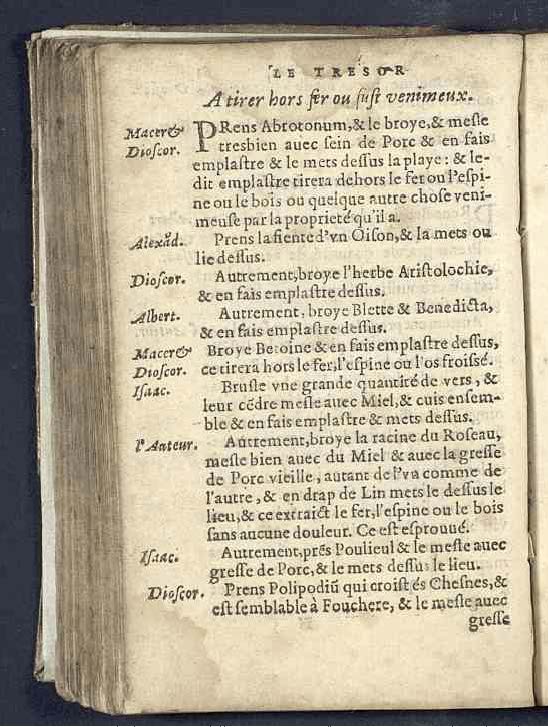 LE TRESOR
A tirer hors fer ou fust venimeux.
Macer &
Dioscor.
PRens Abrotonum, & le broye, & mesle
tresbien auec sein de Porc & en fais
emplastre & le mets dessus la playe: & le-
dit emplastre tirera dehors le fer ou l'espi-
ne ou le bois ou quelque autre chose veni-
meuse par la proprieté qu'il a.
Alexād.
Prens la fiente d'vn Oison, & la mets ou
lie dessus.
Dioscor.
Autrement, broye l'herbe Aristolochie,
& en fais emplastre dessus.
Albert.
Autrement, broye Blette & Benedicta,
& en fais emplastre dessus.
Macer &
Dioscor.
Broye Betoine & en fais emplastre dessus,
ce tirera hors le fer, l'espine ou l'os froissé.
Isaac.
Brusle vne grande quantité de vers, &
leur cēdre mesle auec Miel, & cuis ensem-
ble & en fais emplastre & mets dessus.
l'Auteur.
Autrement, broye la racine du Roseau,
mesle bien auec du Miel & auec la gresse
de Porc vieille, autant de l'vn comme de
l'autre, & en drap de Lin mets le dessus le
lieu, & ce extraict le fer, l'espine ou le bois
sans aucune douleur. Ce est esprouué.
Isaac.
Autrement, prēs Poulieul & le mesle auec
gresse de Porc, & le mets dessus le lieu.
Dioscor.
Prens Polipodiū qui croist és Chesnes, &
est semblable à Fouchere, & le mesle auec
gresse